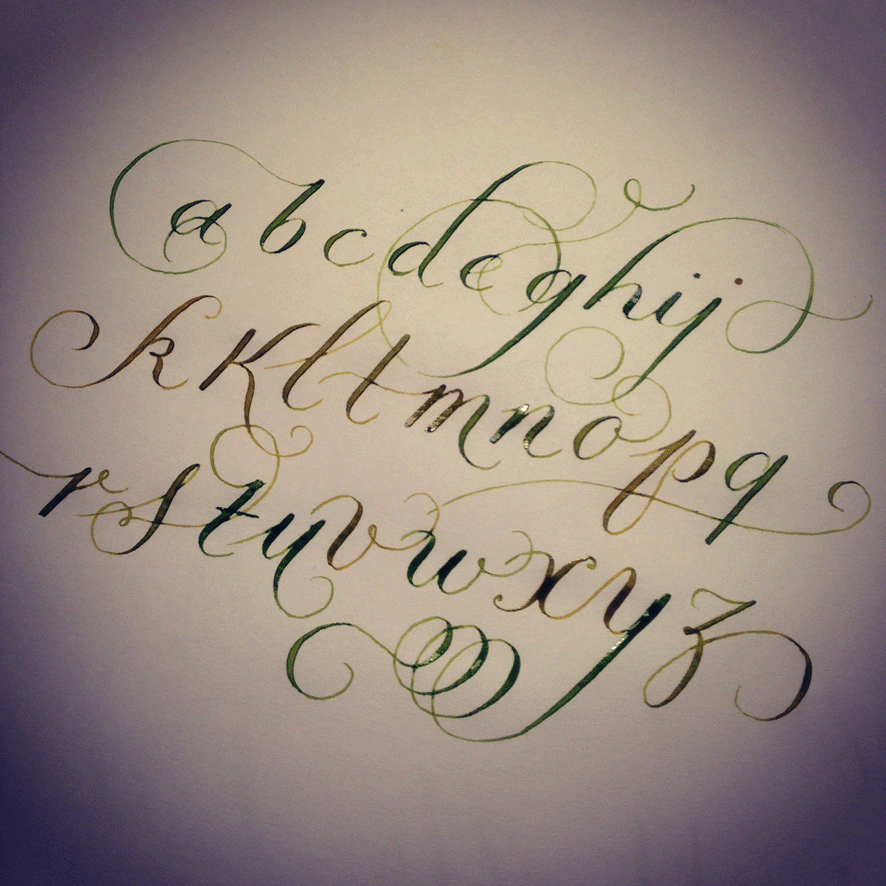 abcdeghij
kKltmnopq
rstuvwxyz